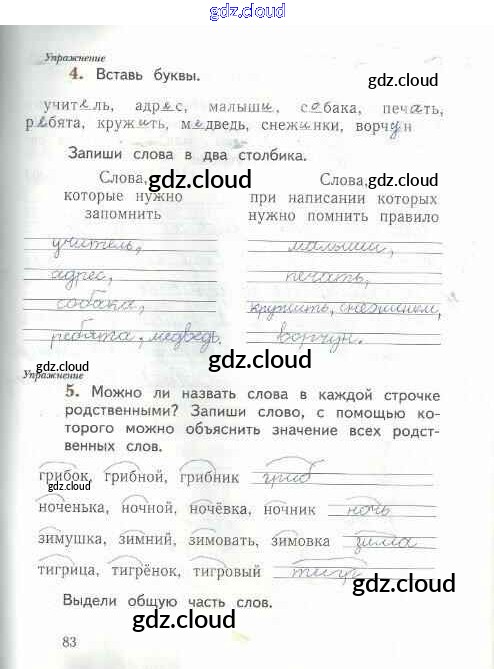 gdz.cloud
Упражнение
4. Вставь буквы.
gdz.cloud
учитель, адрес, малыши, собака, печать,
ребята, кружить, медведь, снежинки, ворчун
Запиши слова в два столбика.
Слова, gdz.cloud Слова,
которые нужно при написании которых
запомнить нужно помнить правило
учитель, малыши,
адрес, печать,
собака, кружить, снежинки,
ребята, медведь. ворчун.
gdz.cloud
gdz.cloud
Упражнение
5. Можно ли назвать слова в каждой строчке
родственными? Запиши слово, с помощью ко-
торого можно объяснить значение всех родст-
венных слов.
gdz.cloud
грибок, грибной, грибник гриб
gdz.cloud
ноченька, ночной, ночёвка, ночник ночь
зимушка, зимний, зимовать, зимовка зима
тигрица, тигрёнок, тигровый тигр
gdz.cloud
Выдели общую часть слов.
gdz.cloud
83
gdz.cloud